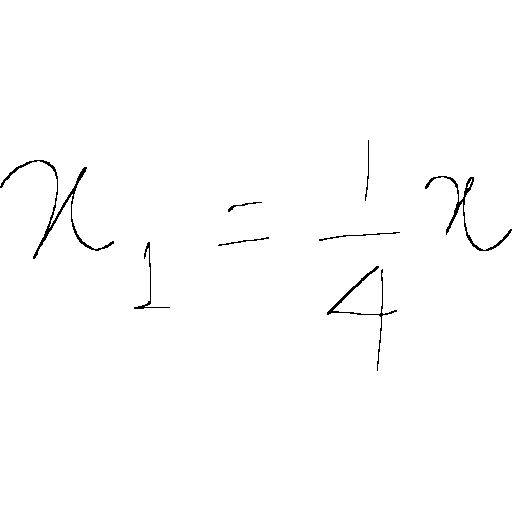 x_1 = \frac{1}{4} x